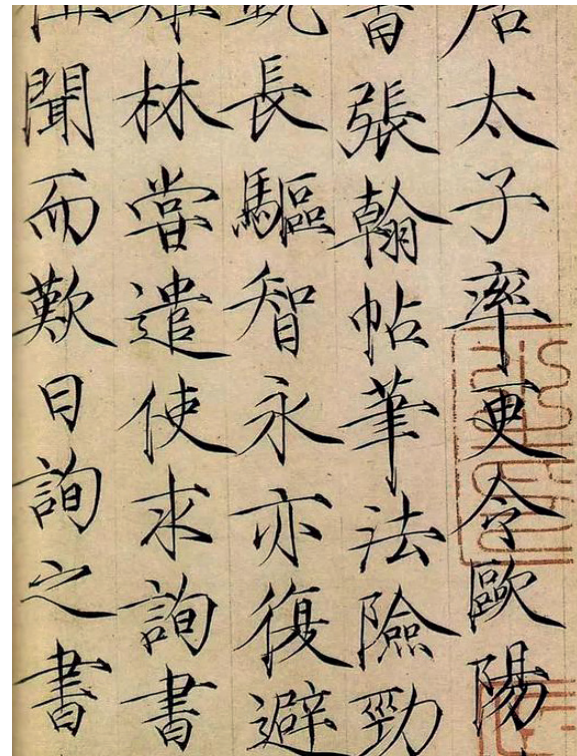 太子率更令歐陽
張翰帖筆法險勁
長驅智永亦復避
林嘗遣使求詢書
聞而歎曰詢之書